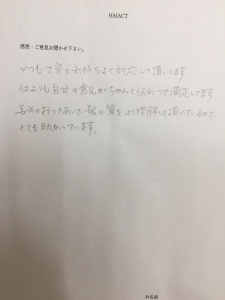 HAIACT
感想・ご意見お聞かせ下さい。
いつも丁寧で気持ちよく対応して頂いてます
仕上りも自分の意見がちゃんと伝わって満足してます
長年のおつきあいで髪の質をよく理解して頂いているので
とても助かっています。
お名前